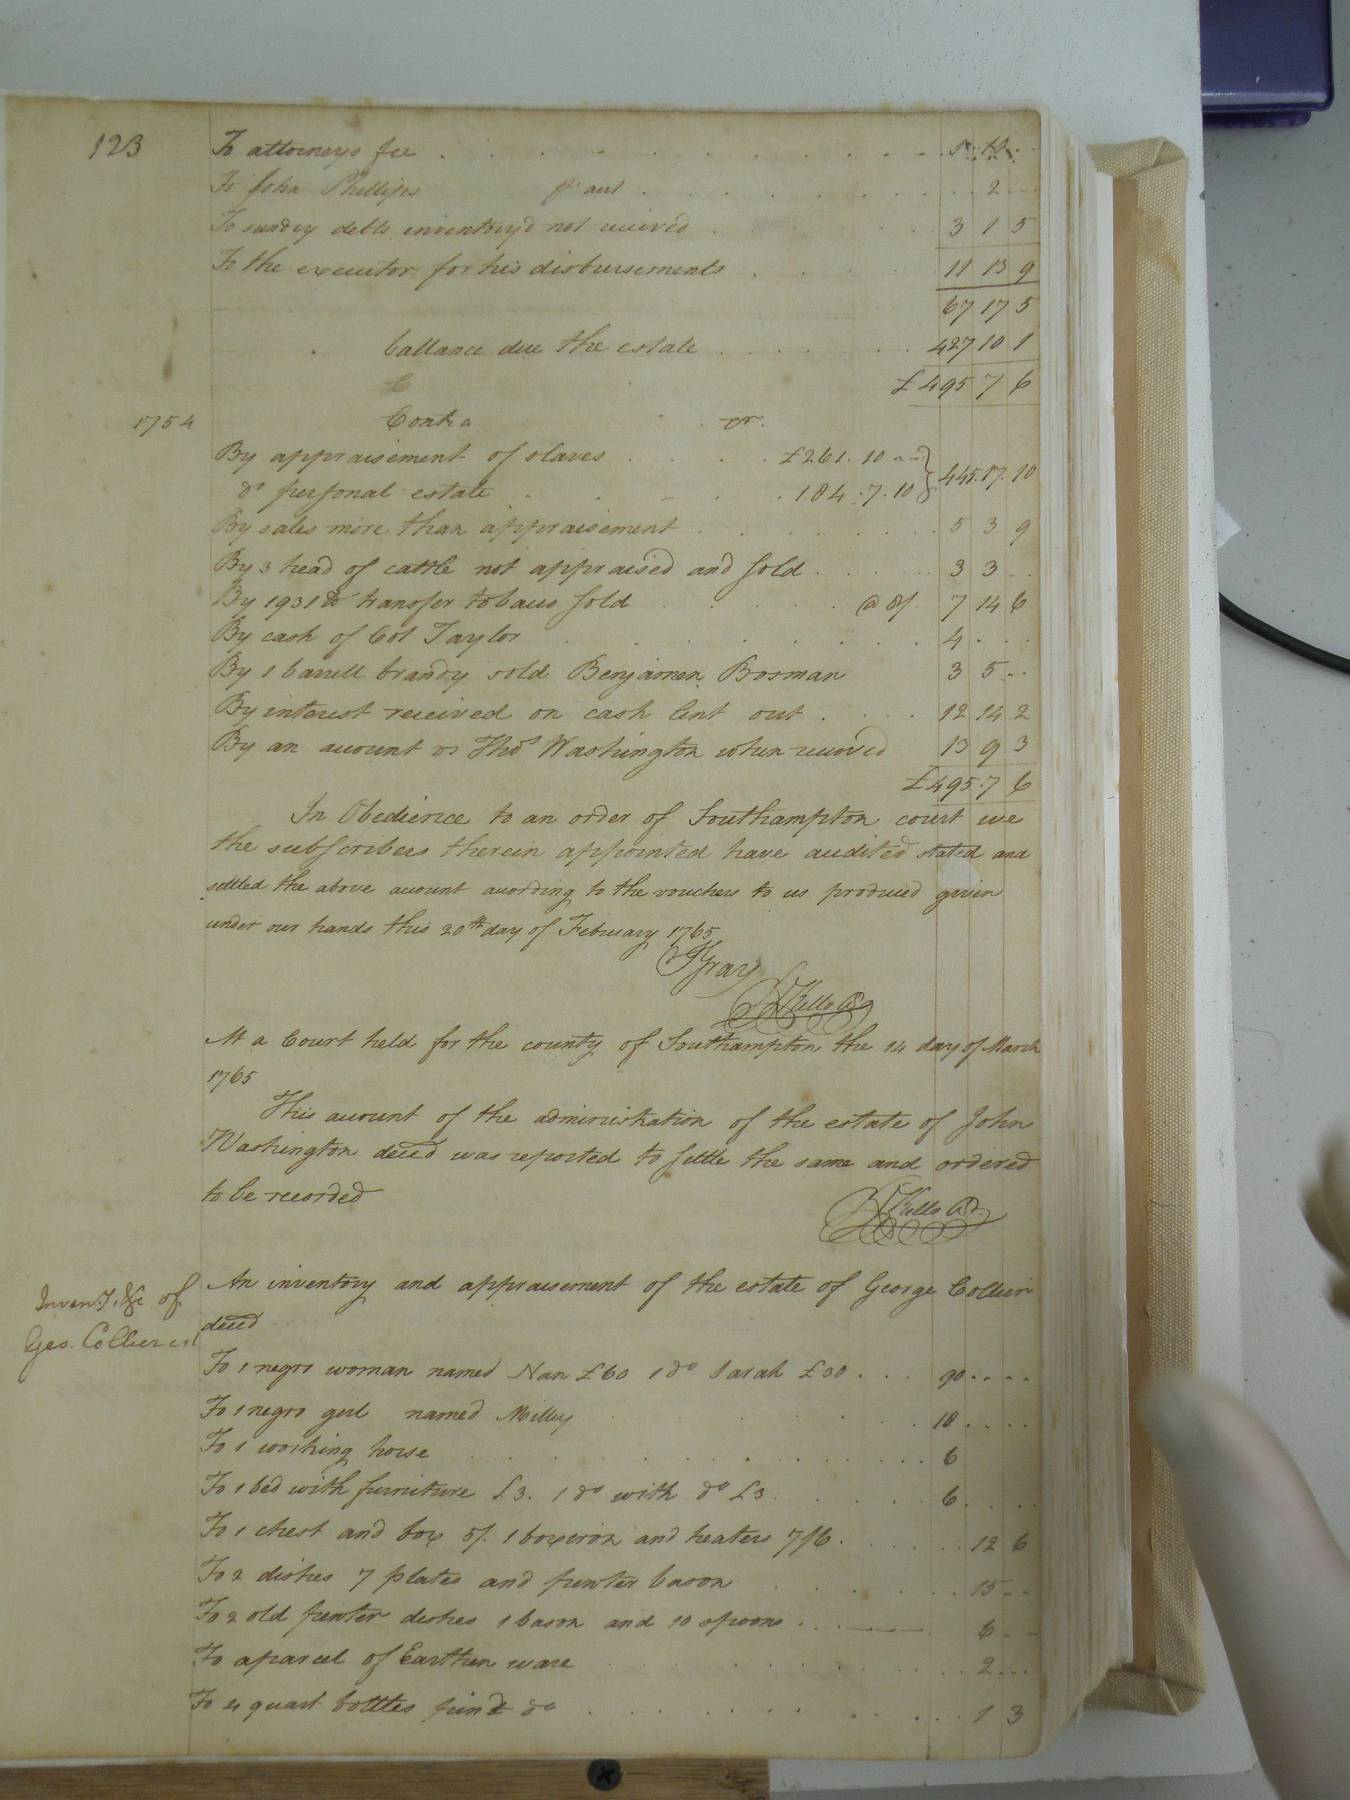 123
To attorneys fee . . . . . 5. 10. .
To John Phillips pr aut . . . . . 2 ..
To sundry debts inventory'd not received . . . 3 1 5
To the executor for his disbursements . . . 11 13 9
67 17 5
ballance due the estate . . . . 427 10 1
£495 7 6
1754 Contra cr.
By appraisement of slaves . . . . £261. 10 --
do personal estate . . . . 184. 7. 10 } 445. 17. 10
By sales more than appraisement . . . . 5 3 9
By 3 head of cattle not appraised and sold . . . 3 3 ..
By 1931 lb transfer tobacco sold . . . . @ 8/ 7 14 6
By cash of Col Taylor . . . . 4 . . .
By 1 barrell brandy sold Benjamen Bosman 3 5 ..
By interest received on cash lent out . . . . 12 14 2
By an account vs Thos Washington when received 13 9 3
£495. 7 6
In Obedience to an order of Southampton court we
the subscribers therein appointed have audited stated and
settled the above acount acording to the vouchers to us produced given
under our hands this 20th day of February 1765
Gray
Kello
At a Court held for the county of Southampton the 14 day of March
1765
This acount of the administration of the estate of John
Washington deced was reported to settle the same and ordered
to be recorded
Kello
Invent. &c of
Geo. Collier
An inventory and appraisement of the estate of George Collier
deced
To 1 negro woman named Nan £60 1 do Sarah £30 . . . 90 . . . .
To 1 negro girl named Milley . . . 18 . . . .
To 1 working horse . . . . 6
To 1 bed with furniture £3. 1 do with do £3 . . . . 6 . . . .
To 1 chest and box 5/. 1 box iron and heaters 7/6 . . . . 12 6
To 2 dishes 7 plates and pewter bason . . . . 15 --
To 2 old pewter dishes 1 bason and 10 spoons . . . 6 --
To a parcel of Earthen ware . . . . 2 ...
To 4 quart bottles do . . . . 1 3